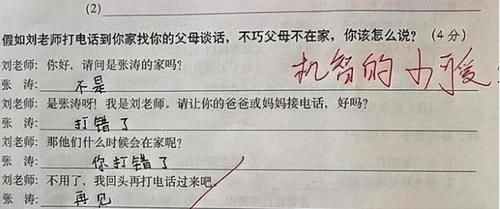 (2)
假如刘老师打电话到你家找你的父母谈话，不巧父母不在家，你该怎么说？（4 分）
刘老师：你好，请问是张涛的家吗？
机智的小可爱
张　涛：不是
刘老师：是张涛呀！我是刘老师。请让你的爸爸或妈妈接电话，好吗？
张　涛：打错了
刘老师：那他们什么时候会在家呢？
张　涛：你打错了
刘老师：不用了，我回头再打电话过来吧。
张　涛：再见